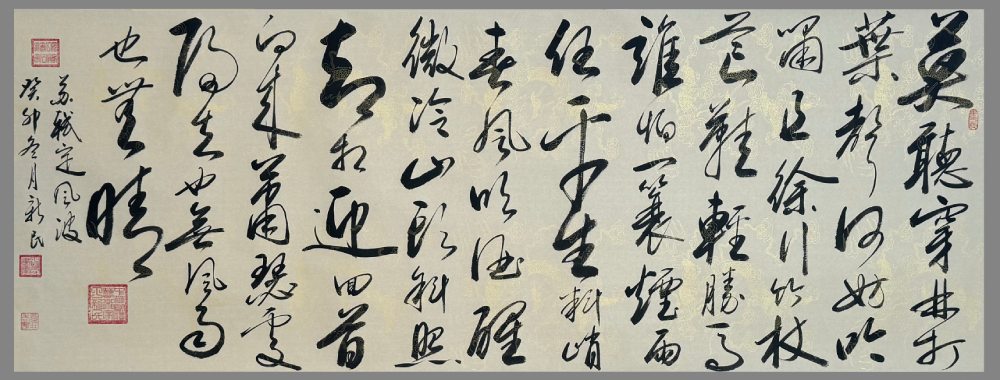 莫聽穿林打
葉聲何妨吟
嘯且徐行竹杖
芒鞋輕勝馬
誰怕一蓑煙雨
任平生料峭
春風吹酒醒
微冷山頭斜照
却相迎回首
向來蕭瑟處
歸去也無風雨
也無晴
蘇軾定風波
癸卯冬月新民